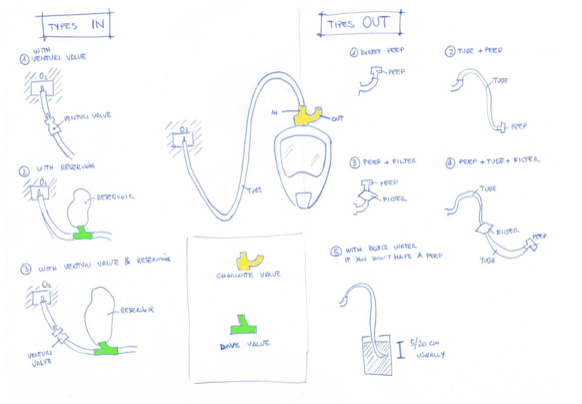 TYPES IN
① WITH
VENTURI VALVE
O₂
VENTURI VALVE
② WITH RESERVOIR
O₂
RESERVOIR
③ WITH VENTURI VALVE & RESERVOIR
O₂
RESERVOIR
VENTURI
VALVE
O₂
IN
OUT
TUBE
CHARLOTTE VALVE
DAVE VALVE
TYPES OUT
① DIRECT PEEP
PEEP
② TUBE + PEEP
TUBE
PEEP
③ PEEP + FILTER
PEEP
FILTER
④ PEEP + TUBE + FILTER
TUBE
FILTER
PEEP
TUBE
⑤ WITH WATER
IF YOU DON'T HAVE A PEEP
5/20 cm
USUALLY